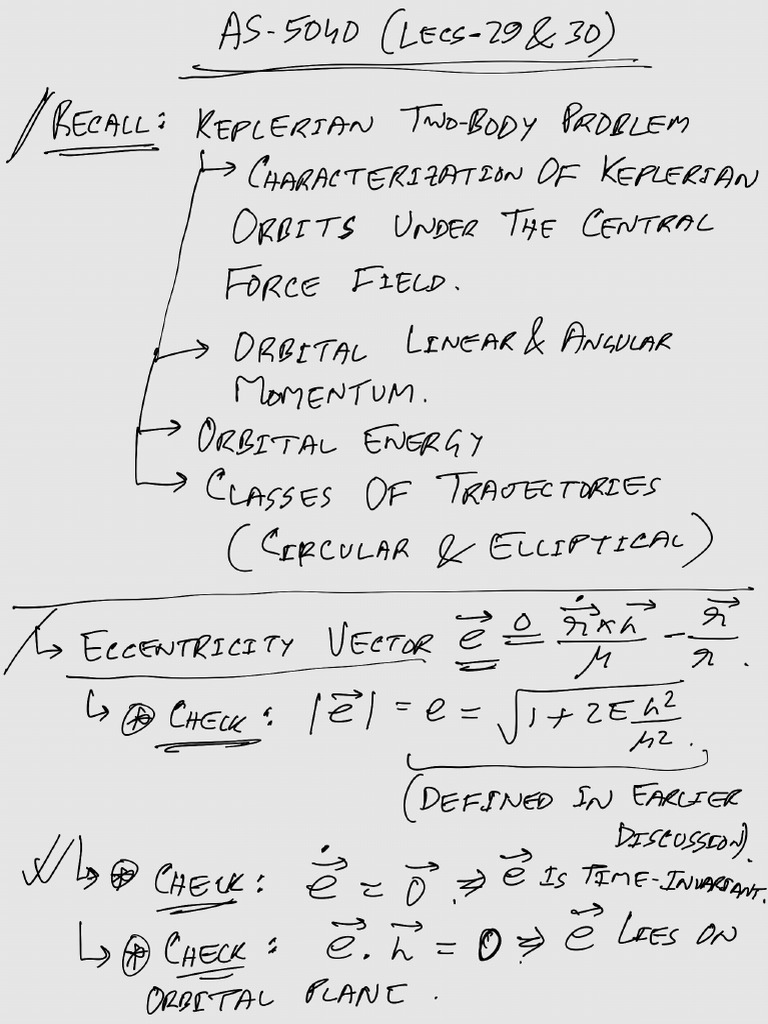 AS-5040 (LECS-29 & 30)
RECALL: KEPLERIAN TWO-BODY PROBLEM
→ CHARACTERIZATION OF KEPLERIAN
ORBITS UNDER THE CENTRAL
FORCE FIELD.
→ ORBITAL LINEAR & ANGULAR
MOMENTUM.
→ ORBITAL ENERGY
→ CLASSES OF TRAJECTORIES
(CIRCULAR & ELLIPTICAL)
↳ ECCENTRICITY VECTOR \vec{e} ≜ \frac{\dot{\vec{r}} × \vec{h}}{μ} - \frac{\vec{r}}{r}.
↳ ⊛ CHECK: |\vec{e}| = e = \sqrt{1 + 2E \frac{h^2}{μ^2}}.
(DEFINED IN EARLIER
DISCUSSION).
↳ ⊛ CHECK: \dot{\vec{e}} = \vec{0}. ⇒ \vec{e} IS TIME-INVARIANT.
↳ ⊛ CHECK: \vec{e} . \vec{h} = 0 ⇒ \vec{e} LIES ON
ORBITAL PLANE.